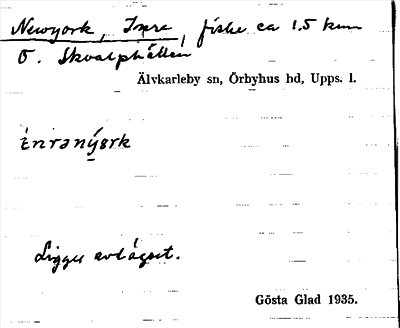 Newyork, Inre, fiske ca 1.5 km
O. Skvalphällen
Älvkarleby sn, Örbyhus hd, Upps. l.
ìnrənýɵrk
Ligger avlägset.
Gösta Glad 1935.